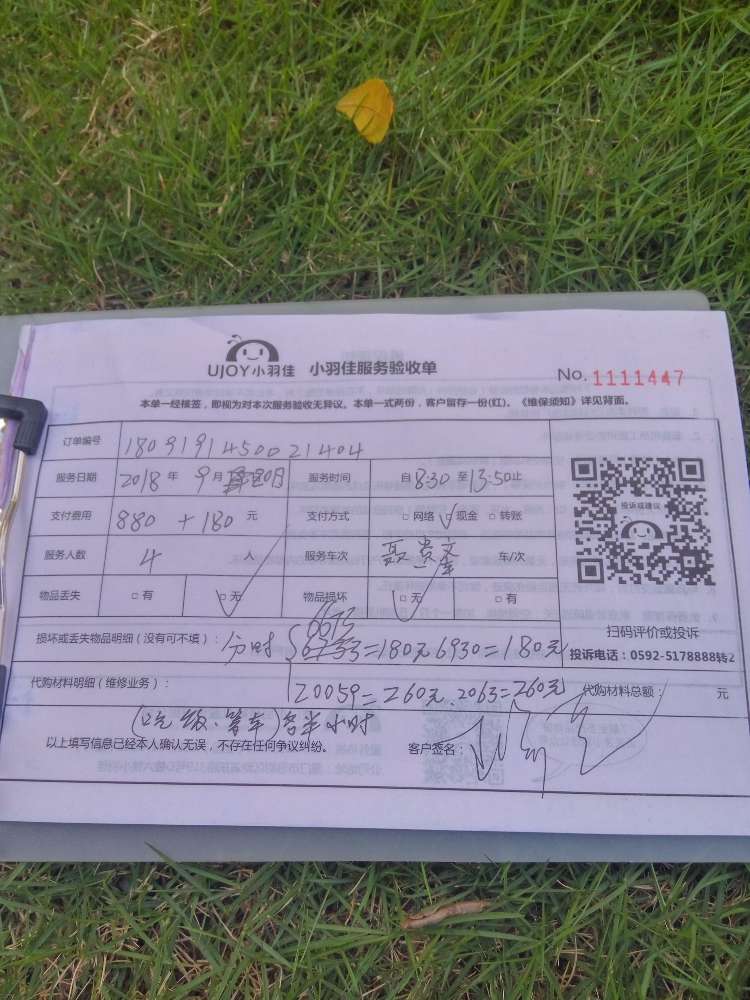 UJOY小羽佳 小羽佳服务验收单 No. 1111447
本单一经接签，即视为对本次服务验收无异议。本单一式两份，客户留存一份(红)。《维保须知》详见背面。
订单编号 180919145002 1404
服务日期 2018 年 9 月 20日 服务时间 自 8:30 至 13:50 止
支付费用 880 + 180 元 支付方式 □ 网络 ☑ 现金 □ 转账
服务人数 4 人 服务车次 聂贵 车/次
物品丢失 □ 有 ☑ 无 物品损坏 ☑ 无 □ 有
投诉或建议
扫码评价或投诉
投诉电话：0592-5178888转2
损坏或丢失物品明细（没有可不填）： 分时 =180元 6930=180元
代购材料明细（维修业务）： 20059=260元. 2063=260元 代购材料总额： 元
等车)各半小时
以上填写信息已经本人确认无误，不存在任何争议纠纷。 客户签名：